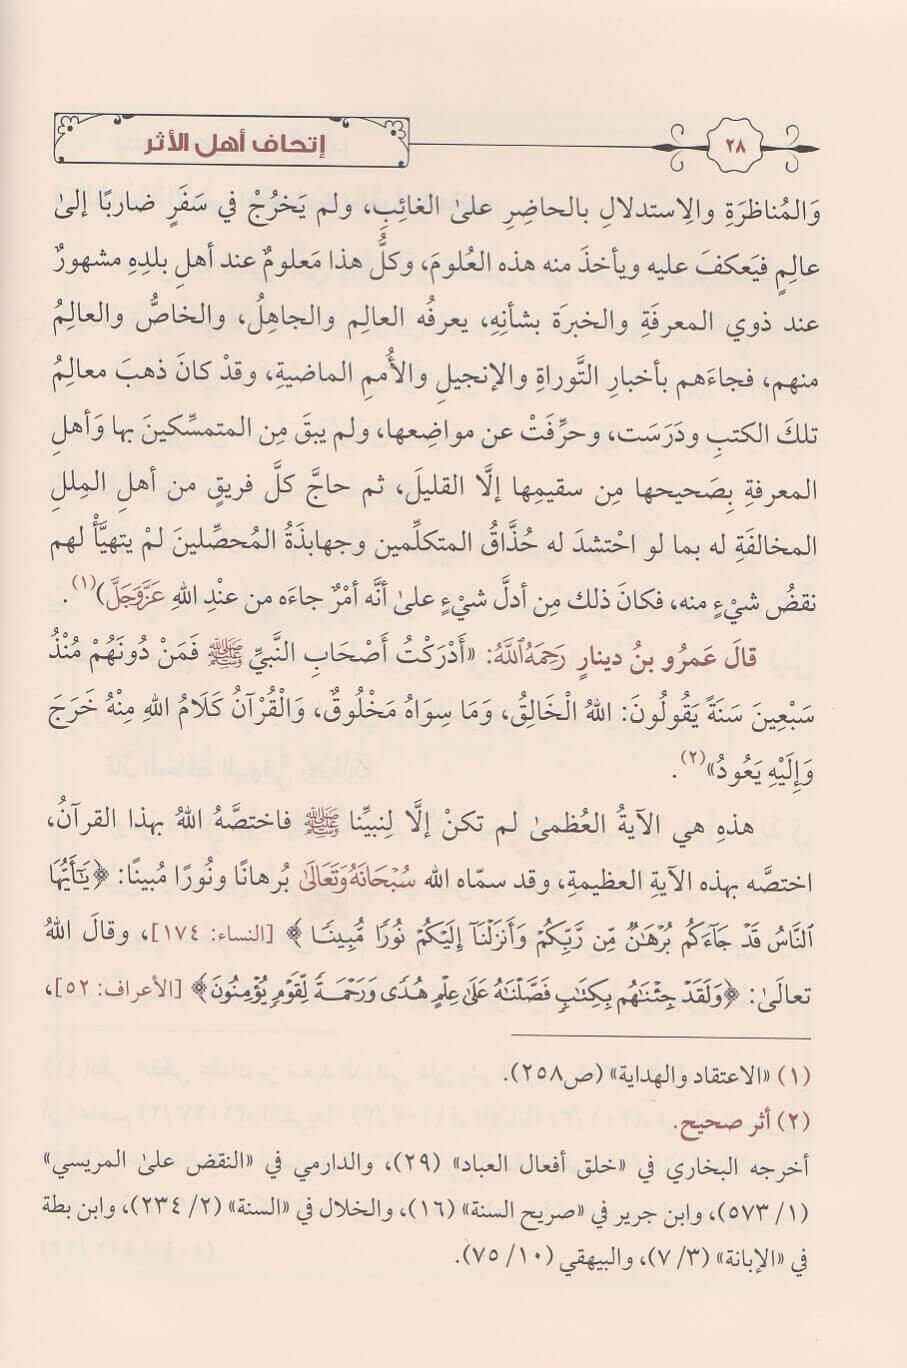 إتحاف أهل الأثر
٢٨
وَالمُناظرَةِ والِاستدلالِ بالحاضِرِ علىٰ الغائِبِ، ولم يَخرُجْ في سَفَرٍ ضاربًا إلىٰ
عالِمٍ فيَعكفَ عليه ويأخذَ منه هذه العُلومَ، وكلُّ هذا مَعلومٌ عند أهلِ بلدِهِ مشهورٌ
عند ذوي المعرفَةِ والخبرَة بشأنِهِ، يعرفُه العالِم والجاهِلُ، والخاصُّ والعالِمُ
منهم، فجاءَهم بأخبارِ التَّوراةِ والإنجيلِ والأُممِ الماضيةِ، وقدْ كانَ ذهبَ معالِمُ
تلكَ الكتبِ ودَرَسَت، وحرِّفَتْ عن مواضِعها، ولم يبقَ مِن المتمسِّكينَ بها وَأهلِ
المعرفةِ بِصَحيحها مِن سقيمِها إلَّا القليلَ، ثم حاجَّ كلَّ فريقٍ من أهلِ المِللِ
المخالفَةِ له بما لو احْتشدَ له حُذَّاقُ المتكلِّمين وجهابذَةُ المُحصِّلينَ لمْ يتهيَّأْ لهم
نقضُ شيْءٍ منه، فكانَ ذلك مِن أدلَّ شيْءٍ علىٰ أنَّه أمْرٌ جاءَه من عنْدِ اللهِ عَزَّوَجَلَّ)(١).
قالَ عَمرُو بنُ دينارٍ رَحِمَهُ ٱللَّهُ: «أَدْرَكْتُ أَصْحَابِ النَّبيِّ ﷺ فَمَنْ دُونَهُمْ مُنْذُ
سَبْعِينَ سَنَةً يَقُولُونَ: اللهُ الْخَالِقُ، وَمَا سِوَاهُ مَخْلُوقٌ، وَالْقُرْآنُ كَلَامُ اللهِ مِنْهُ خَرَجَ
وَإِلَيْهِ يَعُودُ»(٢).
هذهِ هي الآيةُ العُظمىٰ لم تكنْ إلَّا لِنبيِّنا ﷺ فاختصَّهُ اللهُ بهذا القرآنُ،
اختصَّه بهذه الآيةِ العظيمةِ، وقد سمّاه الله سُبْحَانَهُ وَتَعَالَىٰ بُرهانًا ونُورًا مُبينًا: ﴿يَٰٓأَيُّهَا
ٱلنَّاسُ قَدْ جَآءَكُم بُرْهَٰنٌ مِّن رَّبِّكُمْ وَأَنزَلْنَآ إِلَيْكُمْ نُورًا مُّبِينًا﴾ [النساء: ١٧٤]، وقالَ اللهُ
تعالَىٰ: ﴿وَلَقَدْ جِئْنَٰهُم بِكِتَٰبٍ فَصَّلْنَٰهُ عَلَىٰ عِلْمٍ هُدًى وَرَحْمَةً لِّقَوْمٍ يُؤْمِنُونَ﴾ [الأعراف: ٥٢]،
(١) «الاعتقاد والهداية» (ص٢٥٨).
(٢) أثر صحيح.
أخرجه البخاري في «خلق أفعال العباد» (٢٩)، والدارمي في «النقض علىٰ المريسي»
(١/ ٥٧٣)، وابن جرير في «صريح السنة» (١٦)، والخلال في «السنة» (٢/ ٢٣٤)، وابن بطة
في «الإبانة» (٣/ ٧)، والبيهقي (١٠/ ٧٥).